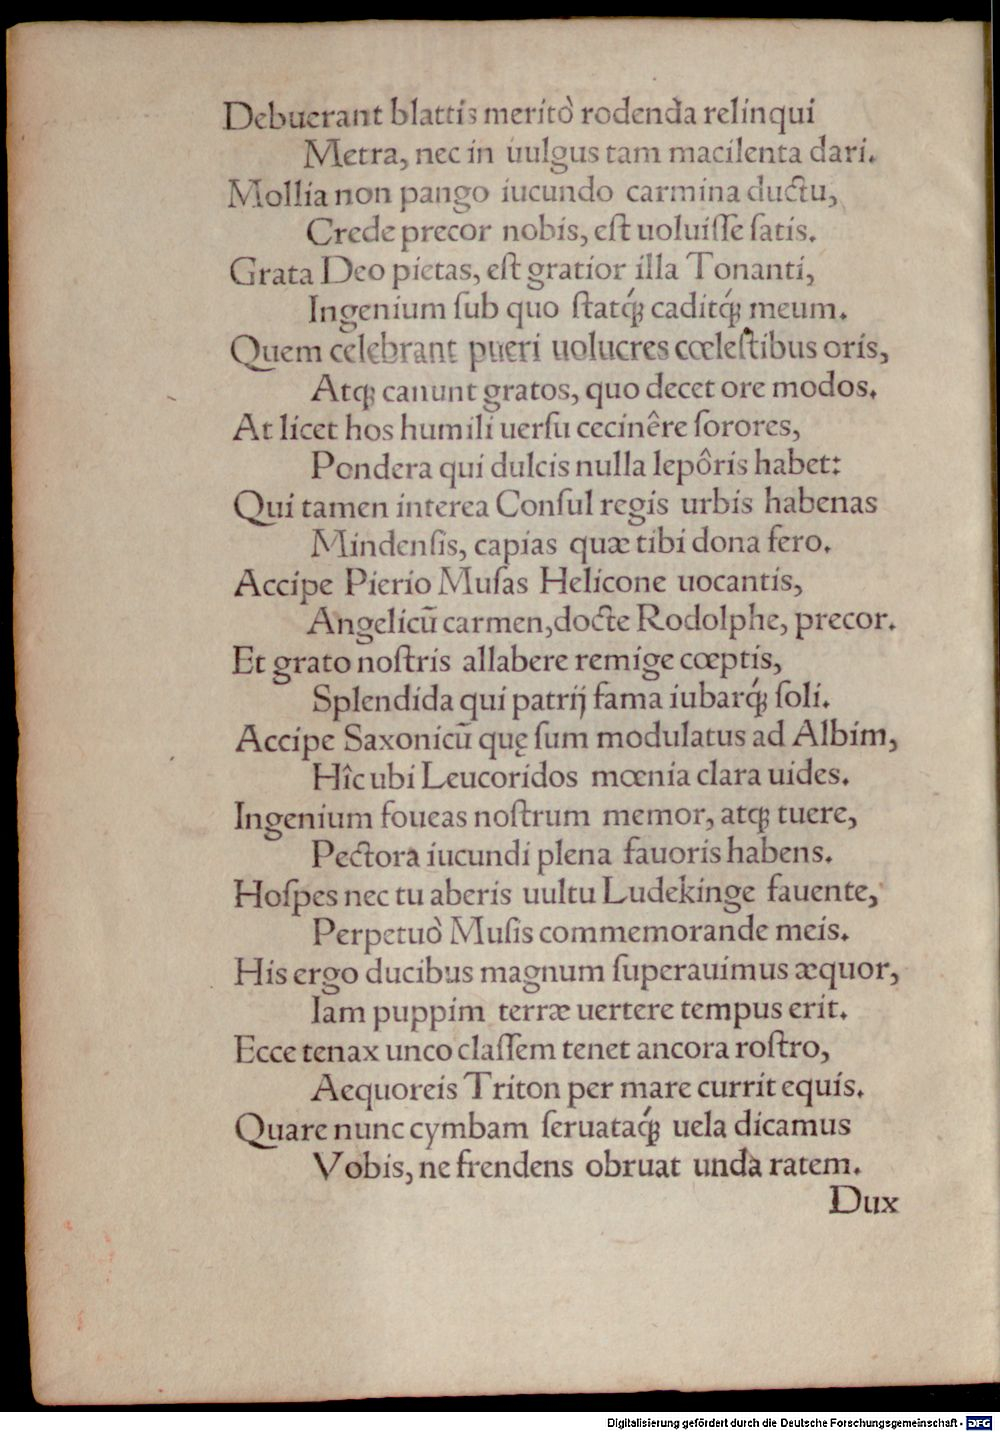 Debuerant blattis meritò rodenda relinqui
Metra, nec in uulgus tam macilenta dari.
Mollia non pango iucundo carmina ductu,
Crede precor nobis, est uoluiſſe ſatis.
Grata Deo pietas, eſt gratior illa Tonanti,
Ingenium ſub quo ſtatq́; caditq́; meum.
Quem celebrant pueri uolucres cœleſtibus oris,
Atq; canunt gratos, quo decet ore modos.
At licet hos humili uerſu cecinêre ſorores,
Pondera qui dulcis nulla lepôris habet:
Qui tamen interea Conſul regis urbis habenas
Mindenſis, capias quæ tibi dona fero.
Accipe Pierio Muſas Helicone uocantis,
Angelicũ carmen, docte Rodolphe, precor.
Et grato noſtris allabere remige cœptis,
Splendida qui patrij fama iubarq́; ſoli.
Accipe Saxonicũ quę ſum modulatus ad Albim,
Hîc ubi Leucoridos mœnia clara uides.
Ingenium foueas noſtrum memor, atq; tuere,
Pectora iucundi plena fauoris habens.
Hoſpes nec tu aberis uultu Ludekinge fauente,
Perpetuò Muſis commemorande meis.
His ergo ducibus magnum ſuperauimus æquor,
Iam puppim terræ uertere tempus erit.
Ecce tenax unco claſſem tenet ancora roſtro,
Aequoreis Triton per mare currit equis.
Quare nunc cymbam ſeruataq́; uela dicamus
Vobis, ne frendens obruat unda ratem.
Dux
Digitalisierung gefördert durch die Deutsche Forschungsgemeinschaft - DFG